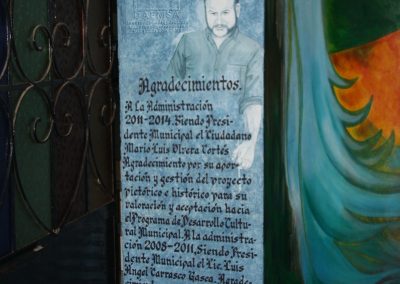 Agradecimientos.
A La Administración
2011-2014. Siendo Presi-
dente Municipal el Ciudadano
Mario Luis Olvera Cortés
Agradecimiento por su apor-
tación y gestión del proyecto
pictórico e histórico para su
valoración y aceptación hacia
el Programa de Desarrollo Cultu-
ral Municipal. A la administra-
ción 2008-2011, Siendo Presi-
dente Municipal el Lic. Luis
Angel Carrasco Gasca. Agrade-